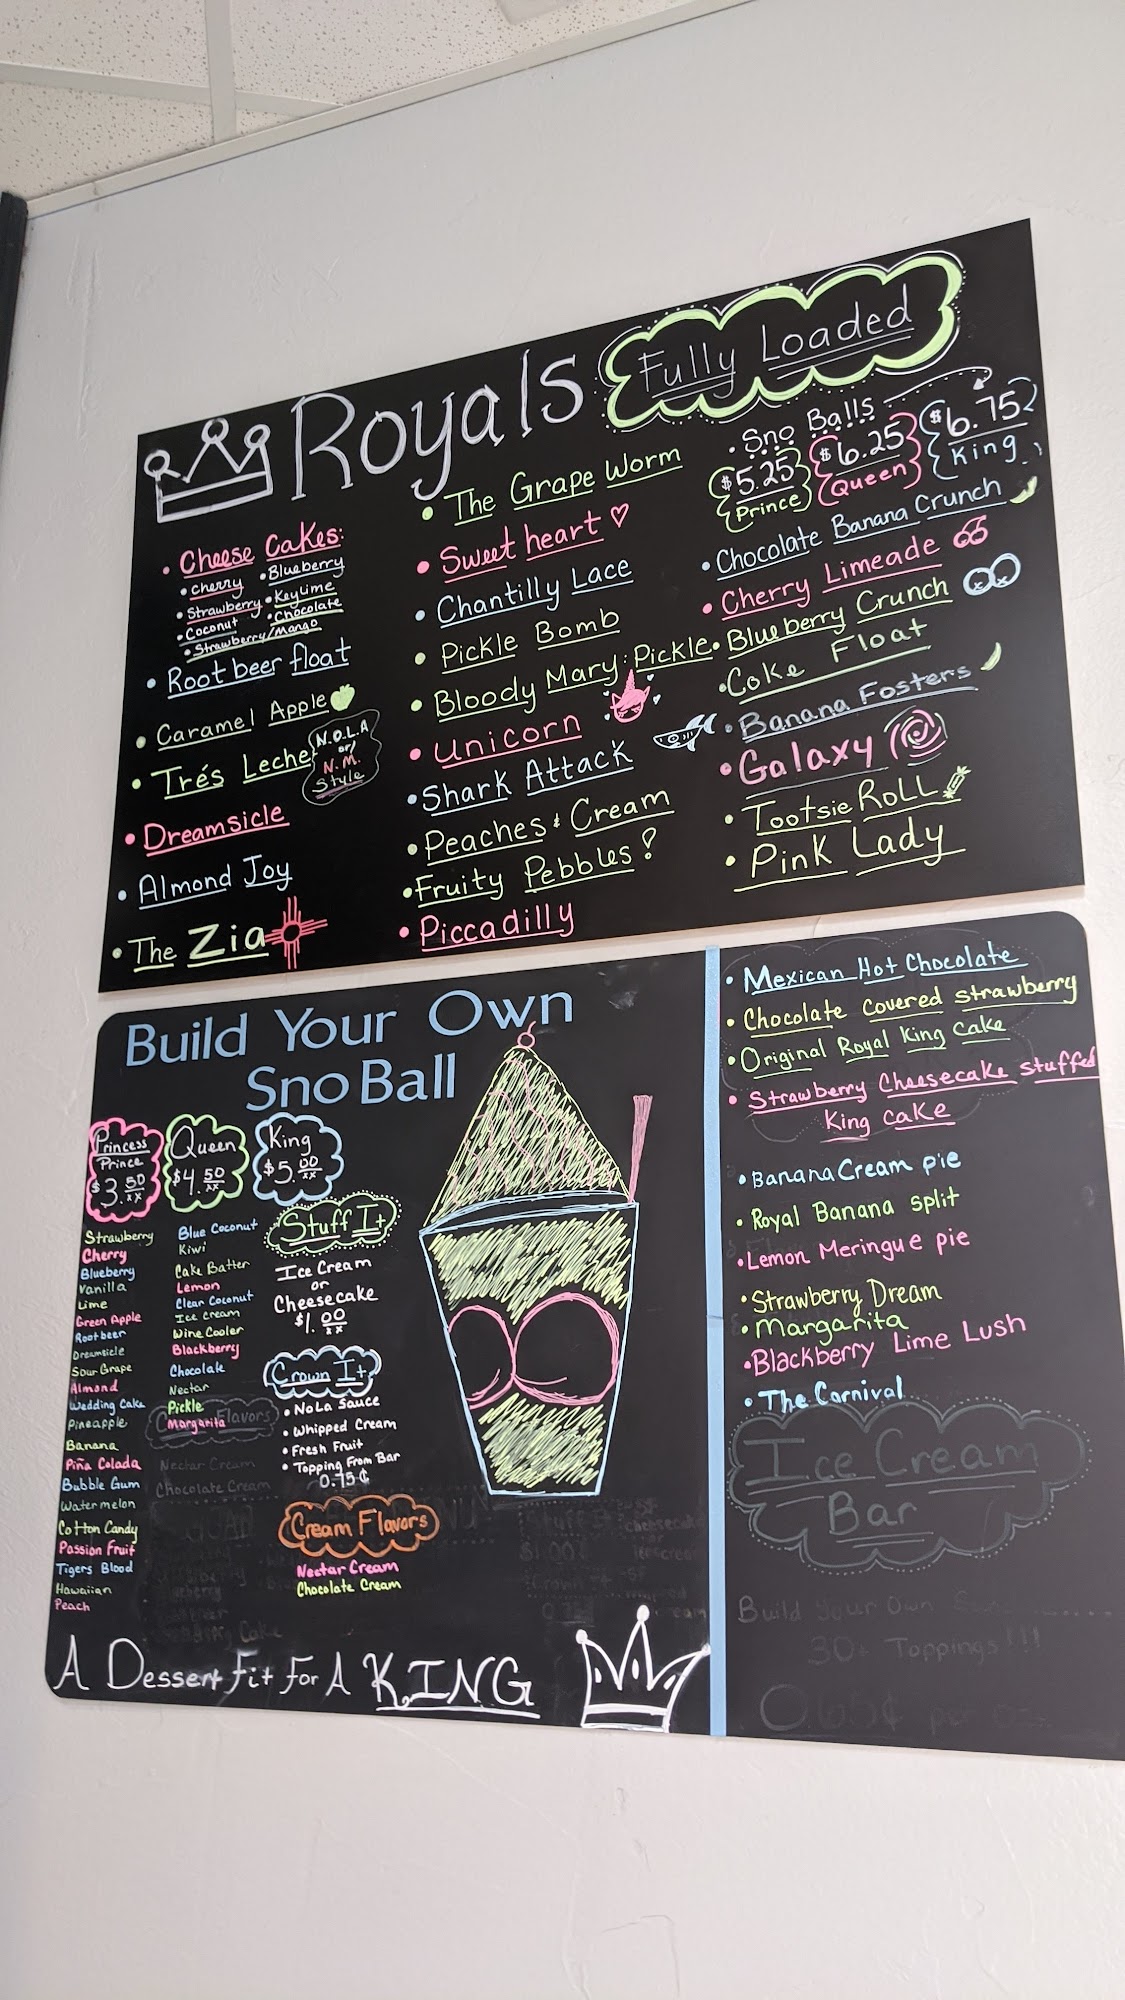 Royals
Fully Loaded
Sno Balls
$5.25 Prince
$6.25 Queen
$6.75 King
• Cheese Cakes:
• Cherry
• Blueberry
• Strawberry
• Keylime
• Coconut
• Chocolate
• Strawberry/Mango
• Root beer float
• Caramel Apple
• Trés Leche
N.O.L.A
or
N.M.
Style
• Dreamsicle
• Almond Joy
• The Zia
• The Grape Worm
• Sweet heart
• Chantilly Lace
• Pickle Bomb
• Bloody Mary: Pickle
• Unicorn
• Shark Attack
• Peaches & Cream
• Fruity Pebbles!
• Piccadilly
• Chocolate Banana Crunch
• Cherry Limeade
• Blueberry Crunch
• Coke Float
• Banana Fosters
• Galaxy
• Tootsie Roll
• Pink Lady
Build Your Own
Sno Ball
Princess
Prince
$3.50
Queen
$4.50
King
$5.00
Strawberry
Cherry
Blueberry
Vanilla
Lime
Green Apple
Root beer
Dreamsicle
Sour Grape
Almond
Wedding Cake
Pineapple
Banana
Piña Colada
Bubble Gum
Watermelon
Cotton Candy
Passion Fruit
Tigers Blood
Hawaiian
Peach
Blue Coconut
Kiwi
Cake Batter
Lemon
Clear Coconut
Ice Cream
Wine Cooler
Blackberry
Chocolate
Nectar
Pickle
Margarita
Nectar Cream
Chocolate Cream
Stuff It
Ice Cream
or
Cheesecake
$1.00
Crown It
• NoLa Sauce
• Whipped Cream
• Fresh Fruit
• Topping From Bar
0.75¢
Cream Flavors
Nectar Cream
Chocolate Cream
A Dessert Fit For A KING
• Mexican Hot Chocolate
• Chocolate covered strawberry
• Original Royal King Cake
• Strawberry Cheesecake stuffed
King cake
• Banana Cream pie
• Royal Banana split
• Lemon Meringue pie
• Strawberry Dream
• Margarita
• Blackberry Lime Lush
• The Carnival
Ice Cream
Bar
Build Your Own
30+ Toppings!!!